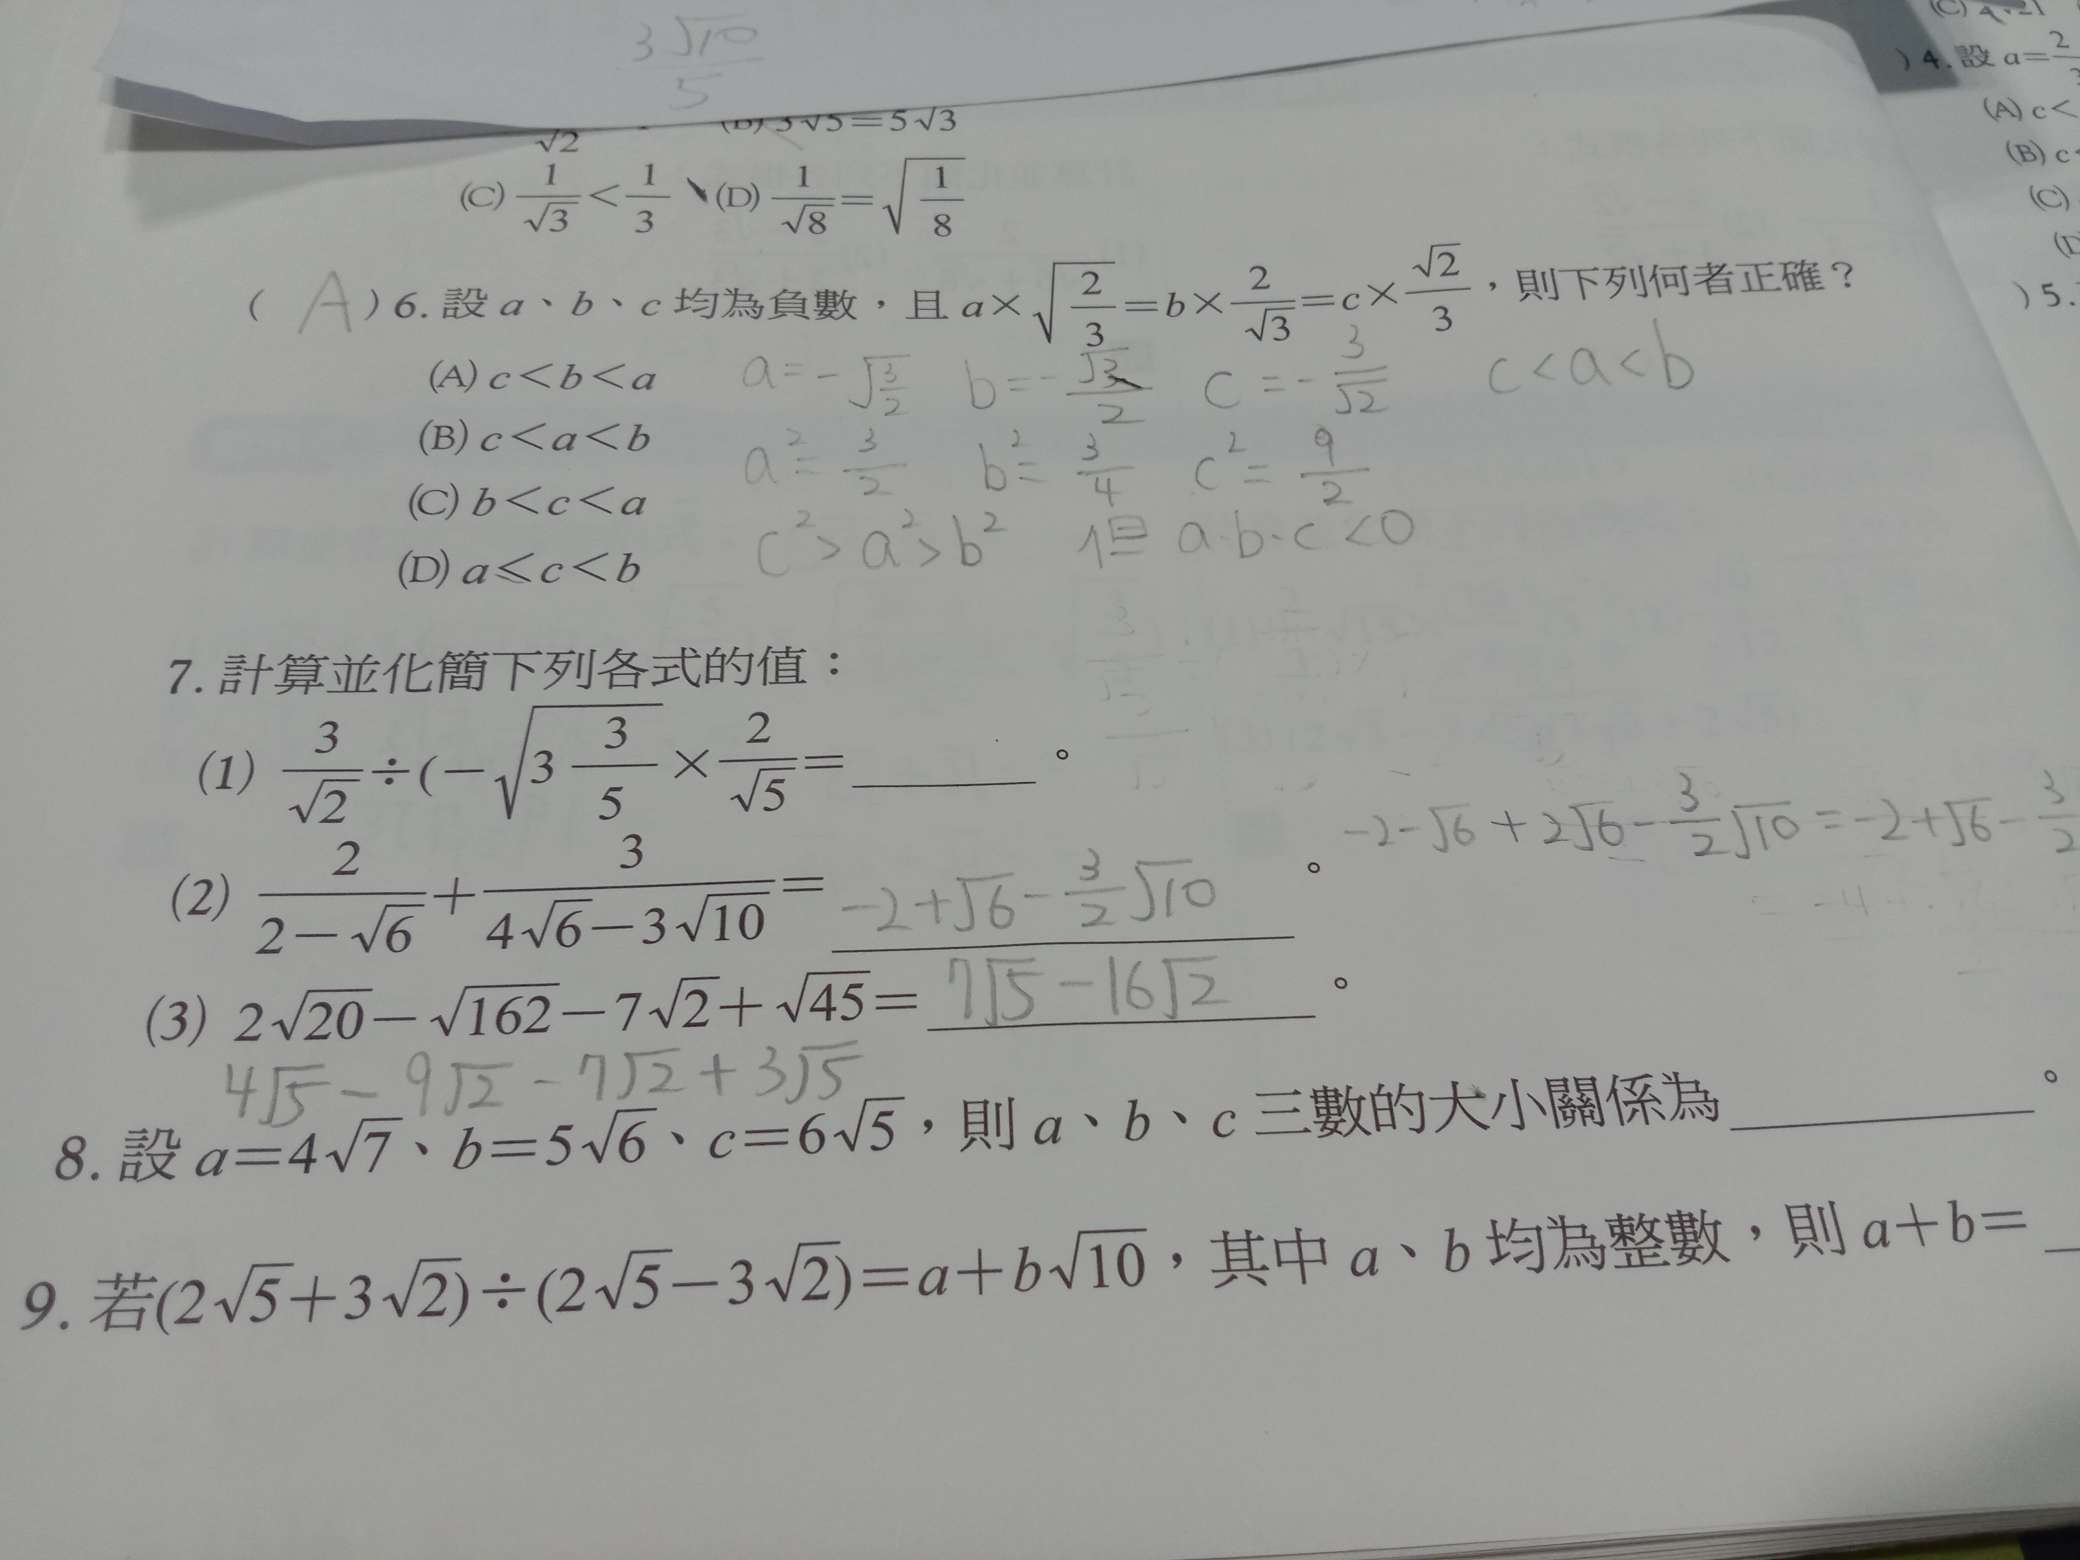 3√10/5
√2 (B) 3√5＝5√3
(C) 1/√3＜1/3 (D) 1/√8＝√(1/8)
( A ) 6. 設 a、b、c 均為負數，且 a×√(2/3)＝b×2/√3＝c×√2/3，則下列何者正確？
(A) c＜b＜a a=-√(3/2) b=-√3/2 c=-3/√2 c<a<b
(B) c＜a＜b
a²=3/2 b²=3/4 c²=9/2
(C) b＜c＜a
c²>a²>b² 但 a.b.c<0
(D) a≤c＜b
7. 計算並化簡下列各式的值：
(1) 3/√2÷(－√(3 3/5)×2/√5＝______。
-2-√6+2√6-3/2√10=-2+√6-3/2
(2) 2/(2－√6)＋3/(4√6－3√10)＝-2+√6-3/2√10。
(3) 2√20－√162－7√2＋√45＝7√5-16√2。
4√5-9√2-7√2+3√5
8. 設 a＝4√7、b＝5√6、c＝6√5，則 a、b、c 三數的大小關係為______。
9. 若(2√5＋3√2)÷(2√5－3√2)＝a＋b√10，其中 a、b 均為整數，則 a＋b＝
) 4. 設 a＝2
(A) c＜
(B) c
(C)
) 5.